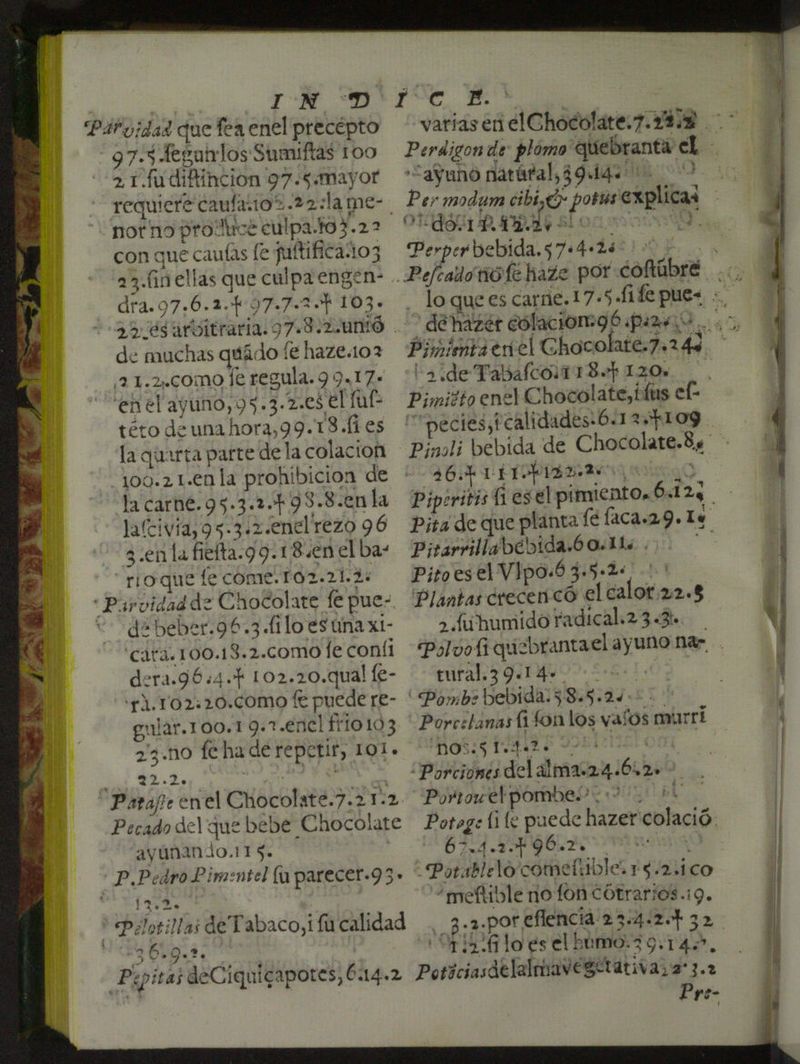 INDICE.
Parvidad que sea enel precepto
97.5.segun los Sumistas 100
21.su distincion 97.5.mayor
requiere causa.102.22.la me-
nor no produce culpa.103.22
con que causas se justifica.103
23.sin ellas que culpa engen-
dra.97.6.2.† 97.7.2.† 103.
22.es arbitraria.97.8.2.unió
de muchas quãdo se haze.102
21.2.como se regula.99.17.
en el ayuno,95.3.2.es el sus-
této de una hora,99.18.si es
la quarta parte de la colacion
100.21.en la prohibicion de
la carne.95.3.2.† 98.8.en la
lascivia,95.3.2.enel rezo 96
3.en la fiesta.99.18.en el ba-
rio que se come.102.21.2.
Parvidad de Chocolate se pue-
de beber.96.3.si lo es una xi-
cara.100.18.2.como se consi
dera.96.4.† 102.20.qual se-
rà.102.20.como se puede re-
gular.100.19.2.enel frio 103
23.no se ha de repetir, 101.
22.2.
Pataste en el Chocolate.7.21.2
Pecado del que bebe Chocolate
ayunando.115.
P.Pedro Pimentel su parecer.93.
13.2.
Pelotillas de Tabaco,i su calidad
36.9.2.
Pepitas deCiquiçapotes,6.14.2
varias en elChocolate.7.22.2
Perdigon de plomo quebranta el
ayuno natural,39.14.
Per modum cibi,& potus explica-
do.
Perper bebida.57.4.2.
Pescado no se haze por costübre
lo que es carne.17.5.si se pue-
de hazer colacion.96.p.2.
Pimienta en el Chocolate.7.24.
2.de Tabasco.118.† 120.
Pimiéto enel Chocolate,i sus es-
pecies,i calidades.6.12.†109
Pinoli bebida de Chocolate.8.
26.† 111.†122.2.
Piperitis si es el pimiento.6.12.
Pita de que planta se saca.29.1.
Pitarrilla bebida.60.11.
Pito es el Vlpo.63.5.2.
Plantas crecen có el calor 22.5
2.su humido radical.23.3.
Polvo si quebranta el ayuno na-
tural.39.14.
Pombe bebida.58.5.2.
Porcelanas si son los vasos murri
nos.51.4.2.
Porciones del alma.24.6.2.
Portou el pombe.
Potage si se puede hazer colació
67.4.2.† 96.2.
Potable lo comestible.15.2.i co
mestible no son cótrarios.19.
3.2.por essencia 23.4.2.† 32
1.2.si lo es el humo.39.14.2.
Potécias de la alma vegetativa,23.2
Pre-